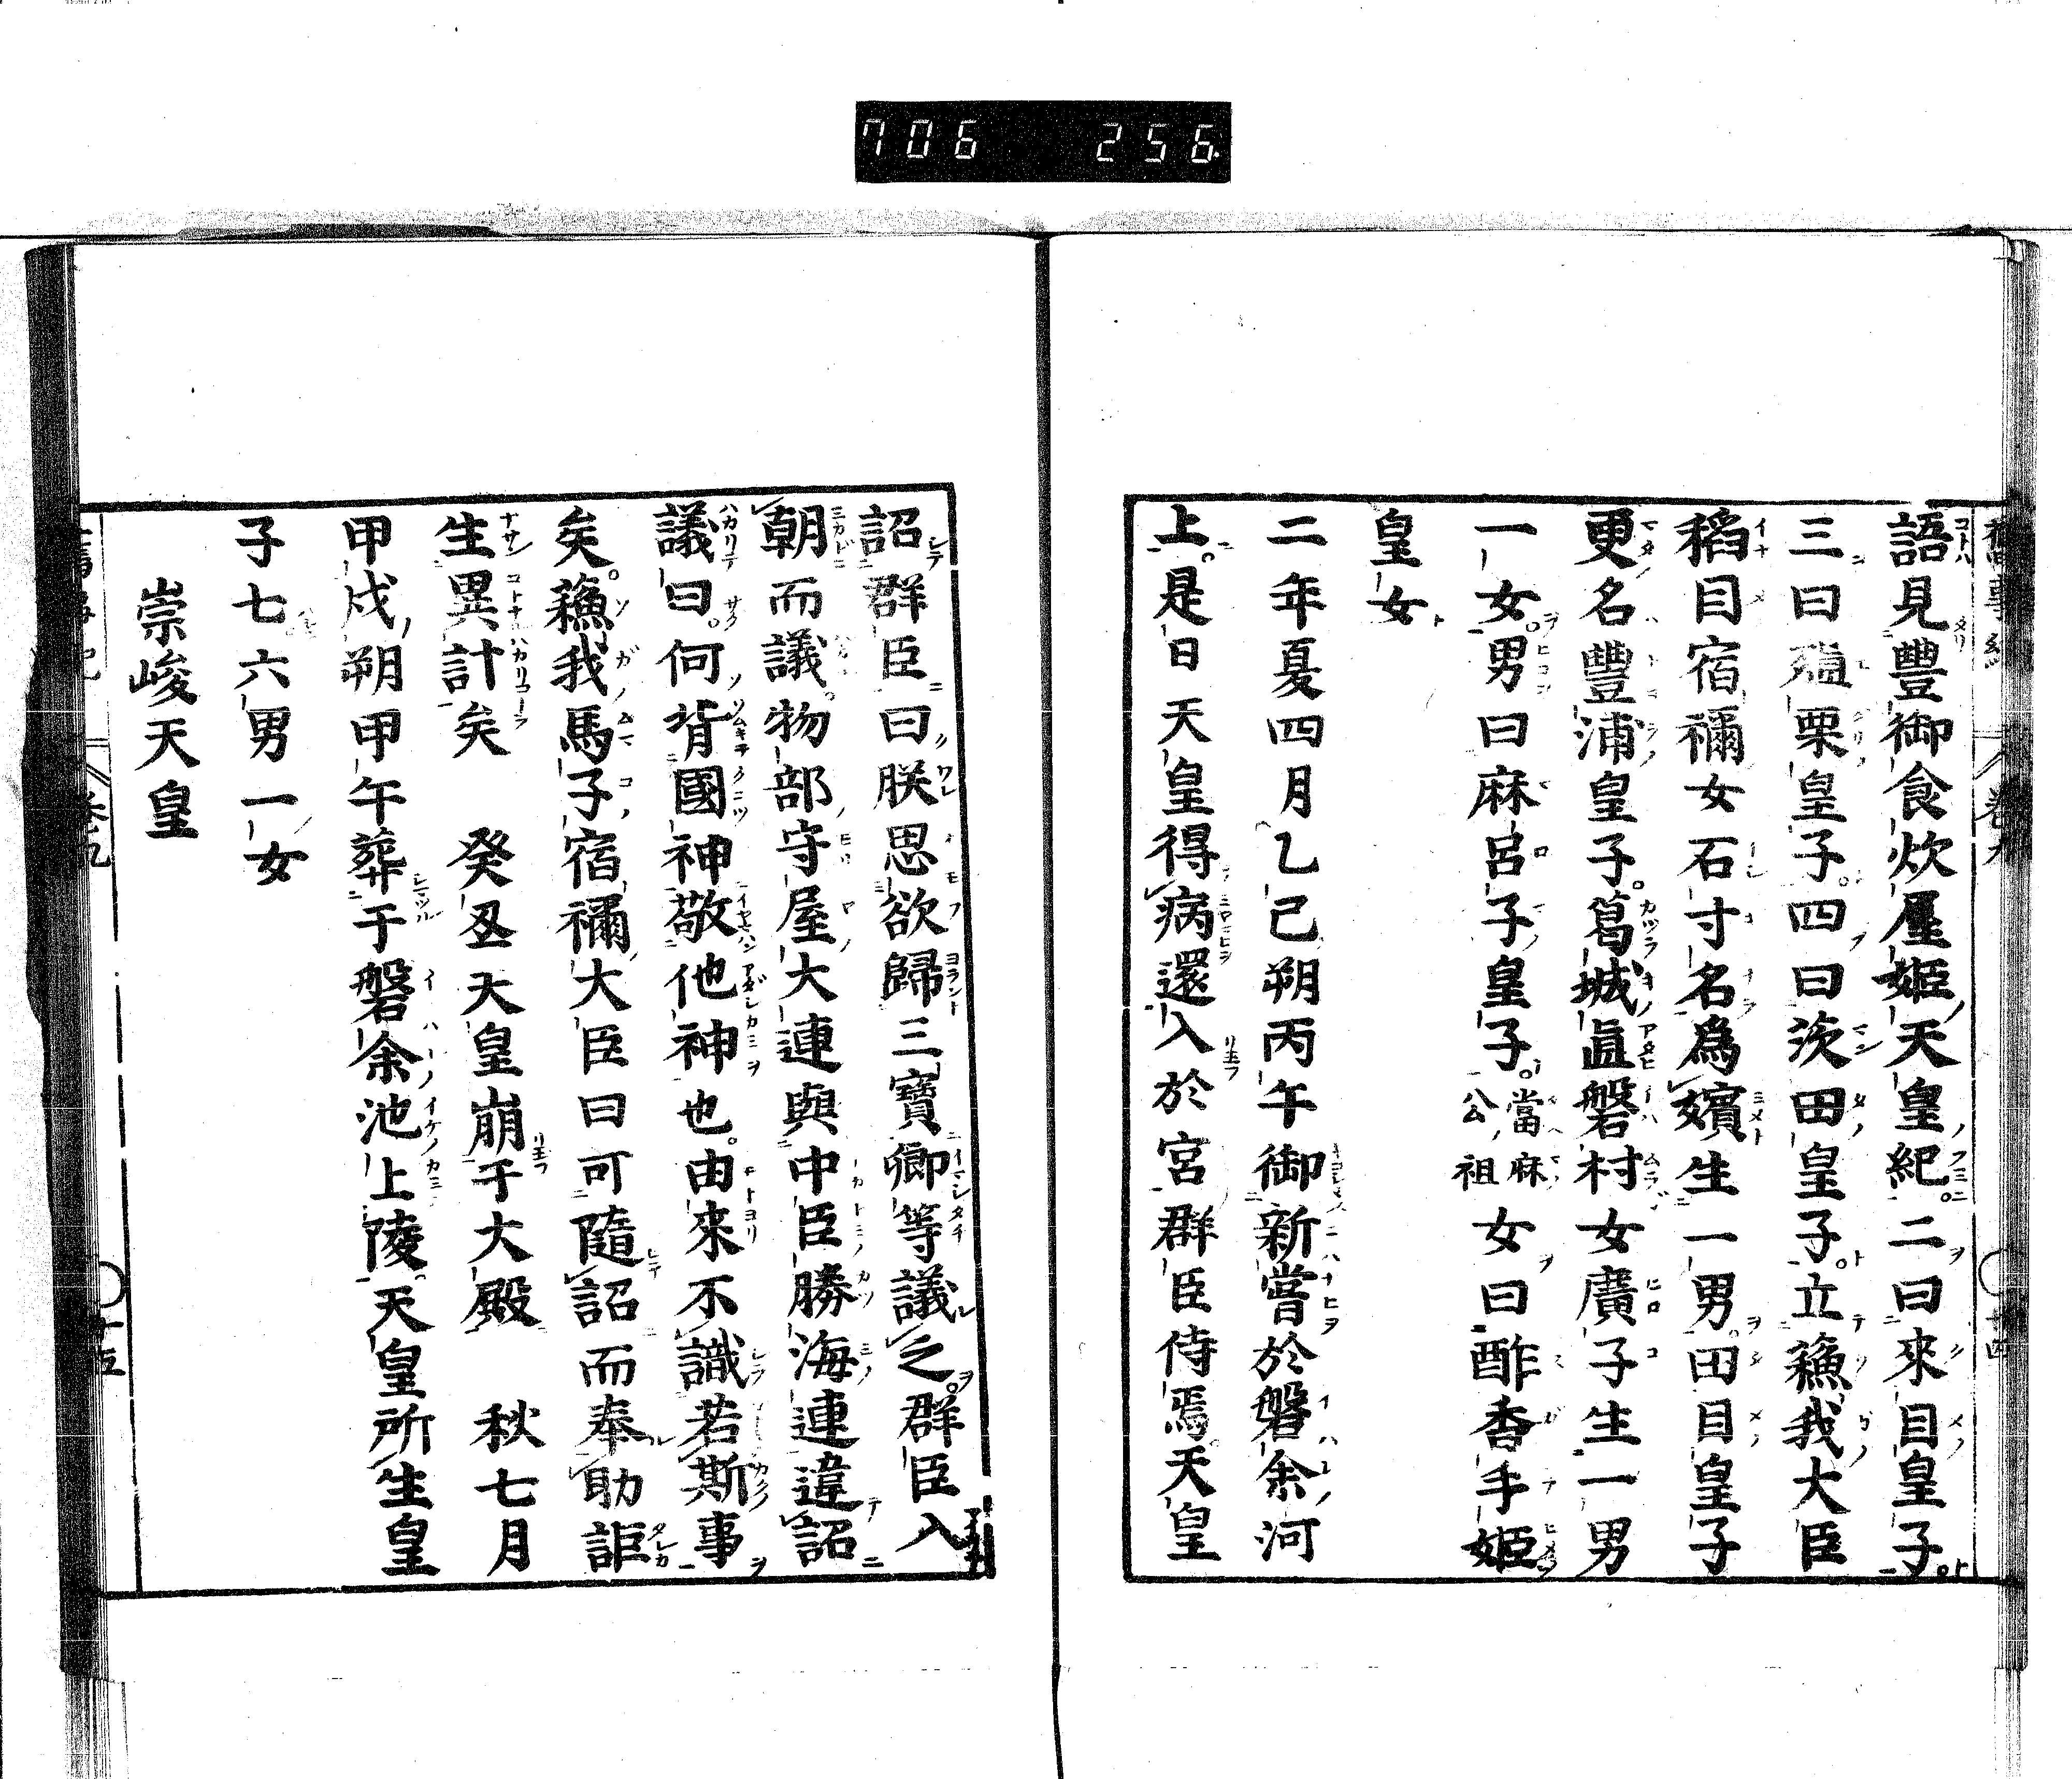 706 256
語見豐御食炊屋姬天皇紀。二曰來目皇子。
三曰殖栗皇子。四曰茨田皇子。立蘓我大臣
稻目宿禰女石寸名爲嬪生一男。田目皇子
更名豐浦皇子。葛城直磐村女廣子生一男
一女。男曰麻呂子皇子。當麻公祖女曰酢香手姬
皇女
二年夏四月乙巳朔丙午御新嘗於磐余河
上。是日天皇得病還入於宮群臣侍焉天皇
詔群臣曰朕思欲歸三寶卿等議之。群臣入
朝而議。物部守屋大連與中臣勝海連違詔
議曰。何背國神敬他神也。由來不識若斯事
矣。蘓我馬子宿禰大臣曰可隨詔而奉助詎
生異計矣 癸丑天皇崩于大殿 秋七月
甲戌朔甲午葬于磐余池上陵。天皇所生皇
子七六男一女
崇峻天皇